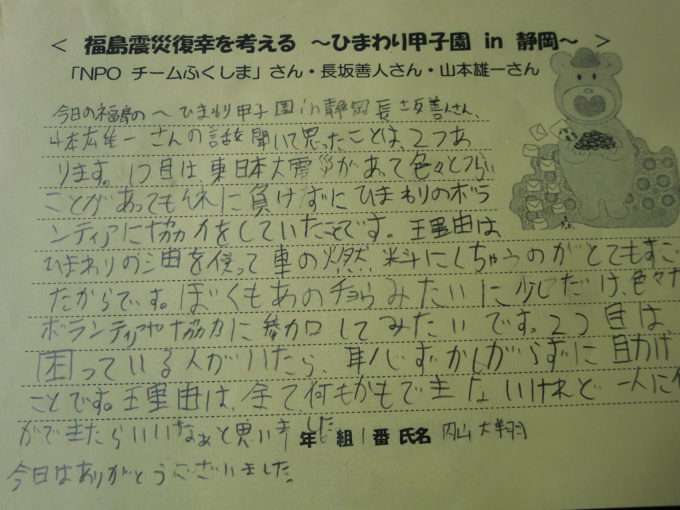 ＜ 福島震災復幸を考える ～ひまわり甲子園 in 静岡～ ＞
「NPO チームふくしま」さん・長坂善人さん・山本雄一さん
今日の福島の～ひまわり甲子園in静岡長坂善人さん、
山本雄一さんの話を聞いて思ったことは、2つあ
ります。1つ目は東日本大震災があって色々とつらい
ことがあっても
に負けずにひまわりのボラ
ンティアに協力をしていたことです。理由は
ひまわりの油を使って車の燃料にしちゃうのがとてもすご
たからです。ぼくもあの
みたいに少しだけ、色々な
ボランティアや協力に参加してみたいです。2つ目は、
困っている人がいたら、恥ずかしがらずに助け
ことです。理由は、全て何もかもできないけれど一人に
ができたらいいなぁと思いました
年 組 1番 氏名 内山大翔
今日はありがとうございました。